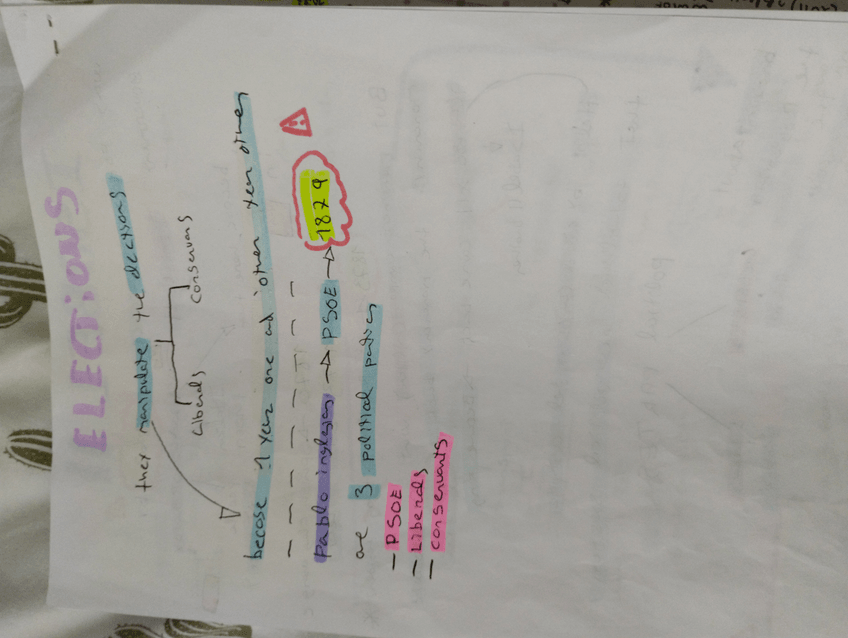 ELECTIONS
they manipulate the elections
Liberals conservans
becose 1 year one ad other year other
Pablo inglesias → PSOE → 1879
are 3 political parties
- PSOE
- Liberals
- conservants